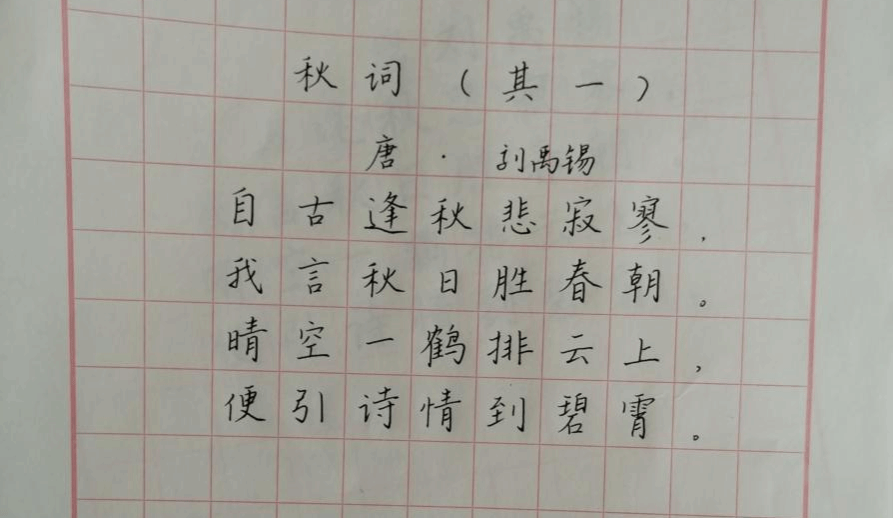 秋词（其一）
唐·刘禹锡
自古逢秋悲寂寥，
我言秋日胜春朝。
晴空一鹤排云上，
便引诗情到碧霄。